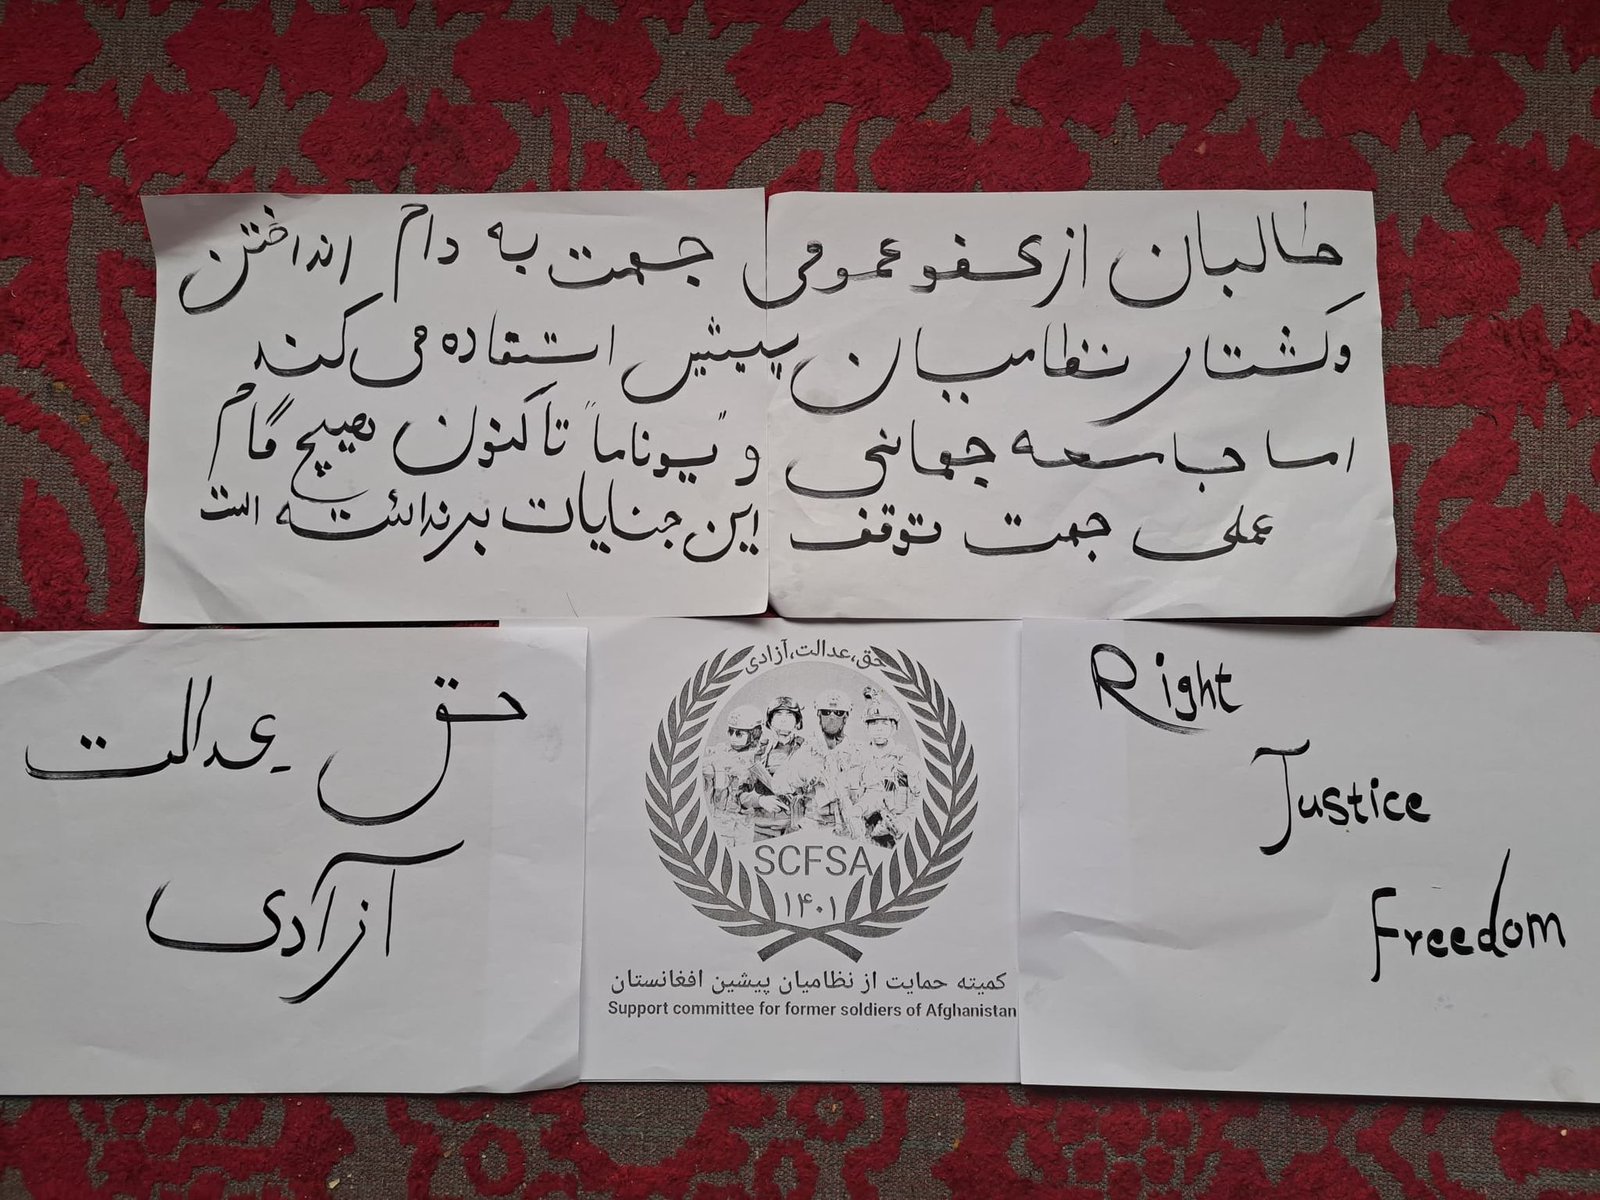 طالبان از عفو عمومی جهت به دام انداختن
و کشتار نظامیان پیشین استفاده می کند
اما جامعه جهانی و "یوناما" تا کنون هیچ گام
عملی جهت توقف این جنایات برنداشته است
حق عدالت
آزادی
حق،عدالت،آزادی
SCFSA
۱۴۰۱
کمیته حمایت از نظامیان پیشین افغانستان
Support committee for former soldiers of Afghanistan
Right
Justice
Freedom